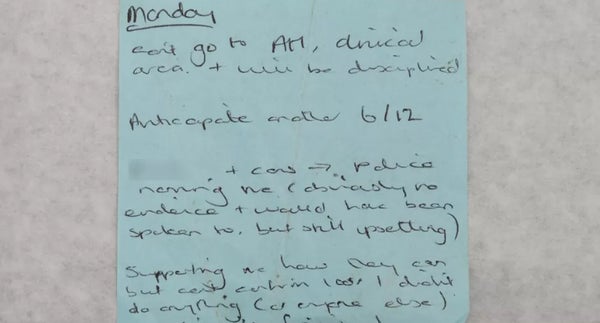 Monday
can't go to AH, clinical
area. + will be disciplined
Anticipate another 6/12
+ cons → police
naming me (obviously no
evidence + would have been
spoken to, but still upsetting)
Supporting me how they can
but can't confirm cos I didn't
do anything (or anyone else)